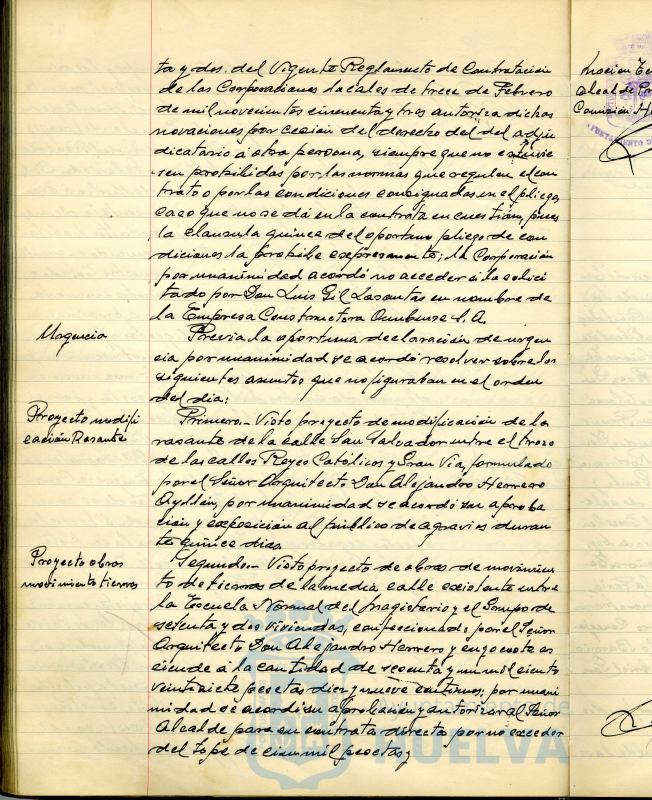 ta y dos del Vigente Reglamento de Contratación
de las Corporaciones locales de trece de Febrero
de mil novecientos cincuenta y tres autoriza dichas
novaciones por cesión del derecho del del adju
dicatario á otra persona, siempre que no estuvie
sen prohibidas por las normas que regulen el con
trato o por las condiciones consignadas en el pliego,
caso que no se dá en la contrata en cuestión, pues
la clausula quince del oportuno pliego de con
diciones la prohibe expresamente; la Corporación
por unanimidad acordó no acceder á lo solici
tado por Don Luis Gil Lasantas en nombre de
la Empresa Constructora Onubense S.A.
Urgencia
Previa la oportuna declaración de urgen
cia por unanimidad se acordó resolver sobre los
siguientes asuntos que no figuraban en el orden
del dia:
Proyecto modifi
cación Rasante
Primero.- Visto proyecto de modificación de la
rasante de la calle San Salvador entre el trozo
de las calles Reyes Católicos y Gran Via, formulado
por el Señor Arquitecto Don Alejandro Herrero
Ayllón, por unanimidad se acordó su aproba
ción y exposición al público de agravios duran
te quince dias.
Proyecto obras
movimiento tierras
Segundo.- Visto proyecto de obras de movimien
to de tierras de la media calle existente entre
la Escuela Normal del Magisterio y el Grupo de
setenta y dos viviendas, confeccionado por el Señor
Arquitecto Don Alejandro Herrero y cuyo coste as
ciende á la cantidad de sesenta y un mil ciento
veintisiete pesetas diez y nueve centimos; por unani
midad se acordó su aprobación y autorizar al Señor
Alcalde para su contrata directa por no exceder
del tope de cien mil pesetas;
HUELVA